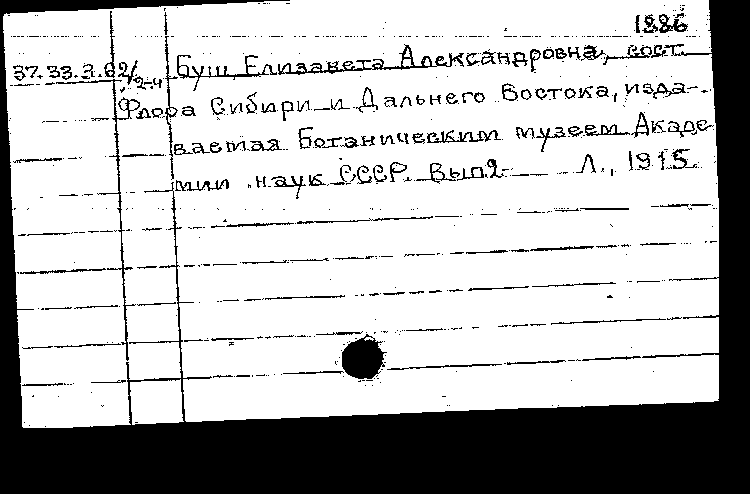 1886
37.33.3.62/2-4 Буш, Елизавета Александровна, сост.
Флора Сибири и Дальнего Востока, изда-
ваемая Ботаническим музеем Акаде-
мии наук СССР. Вып2 Л., 1915.